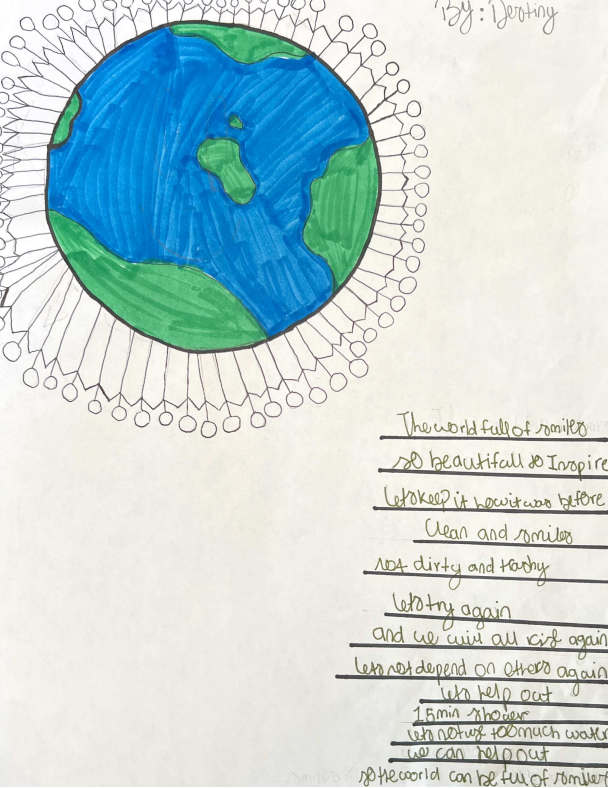 By: Destiny
The world full of smiles
so beautifull so Inspire
lets keep it how it was before
Clean and smiles
not dirty and trashy
lets try again
and we will all again
lets not depend on others again
lets help out
15 min shower
lets not use too much water
we can help out
so the world can be full of smiles